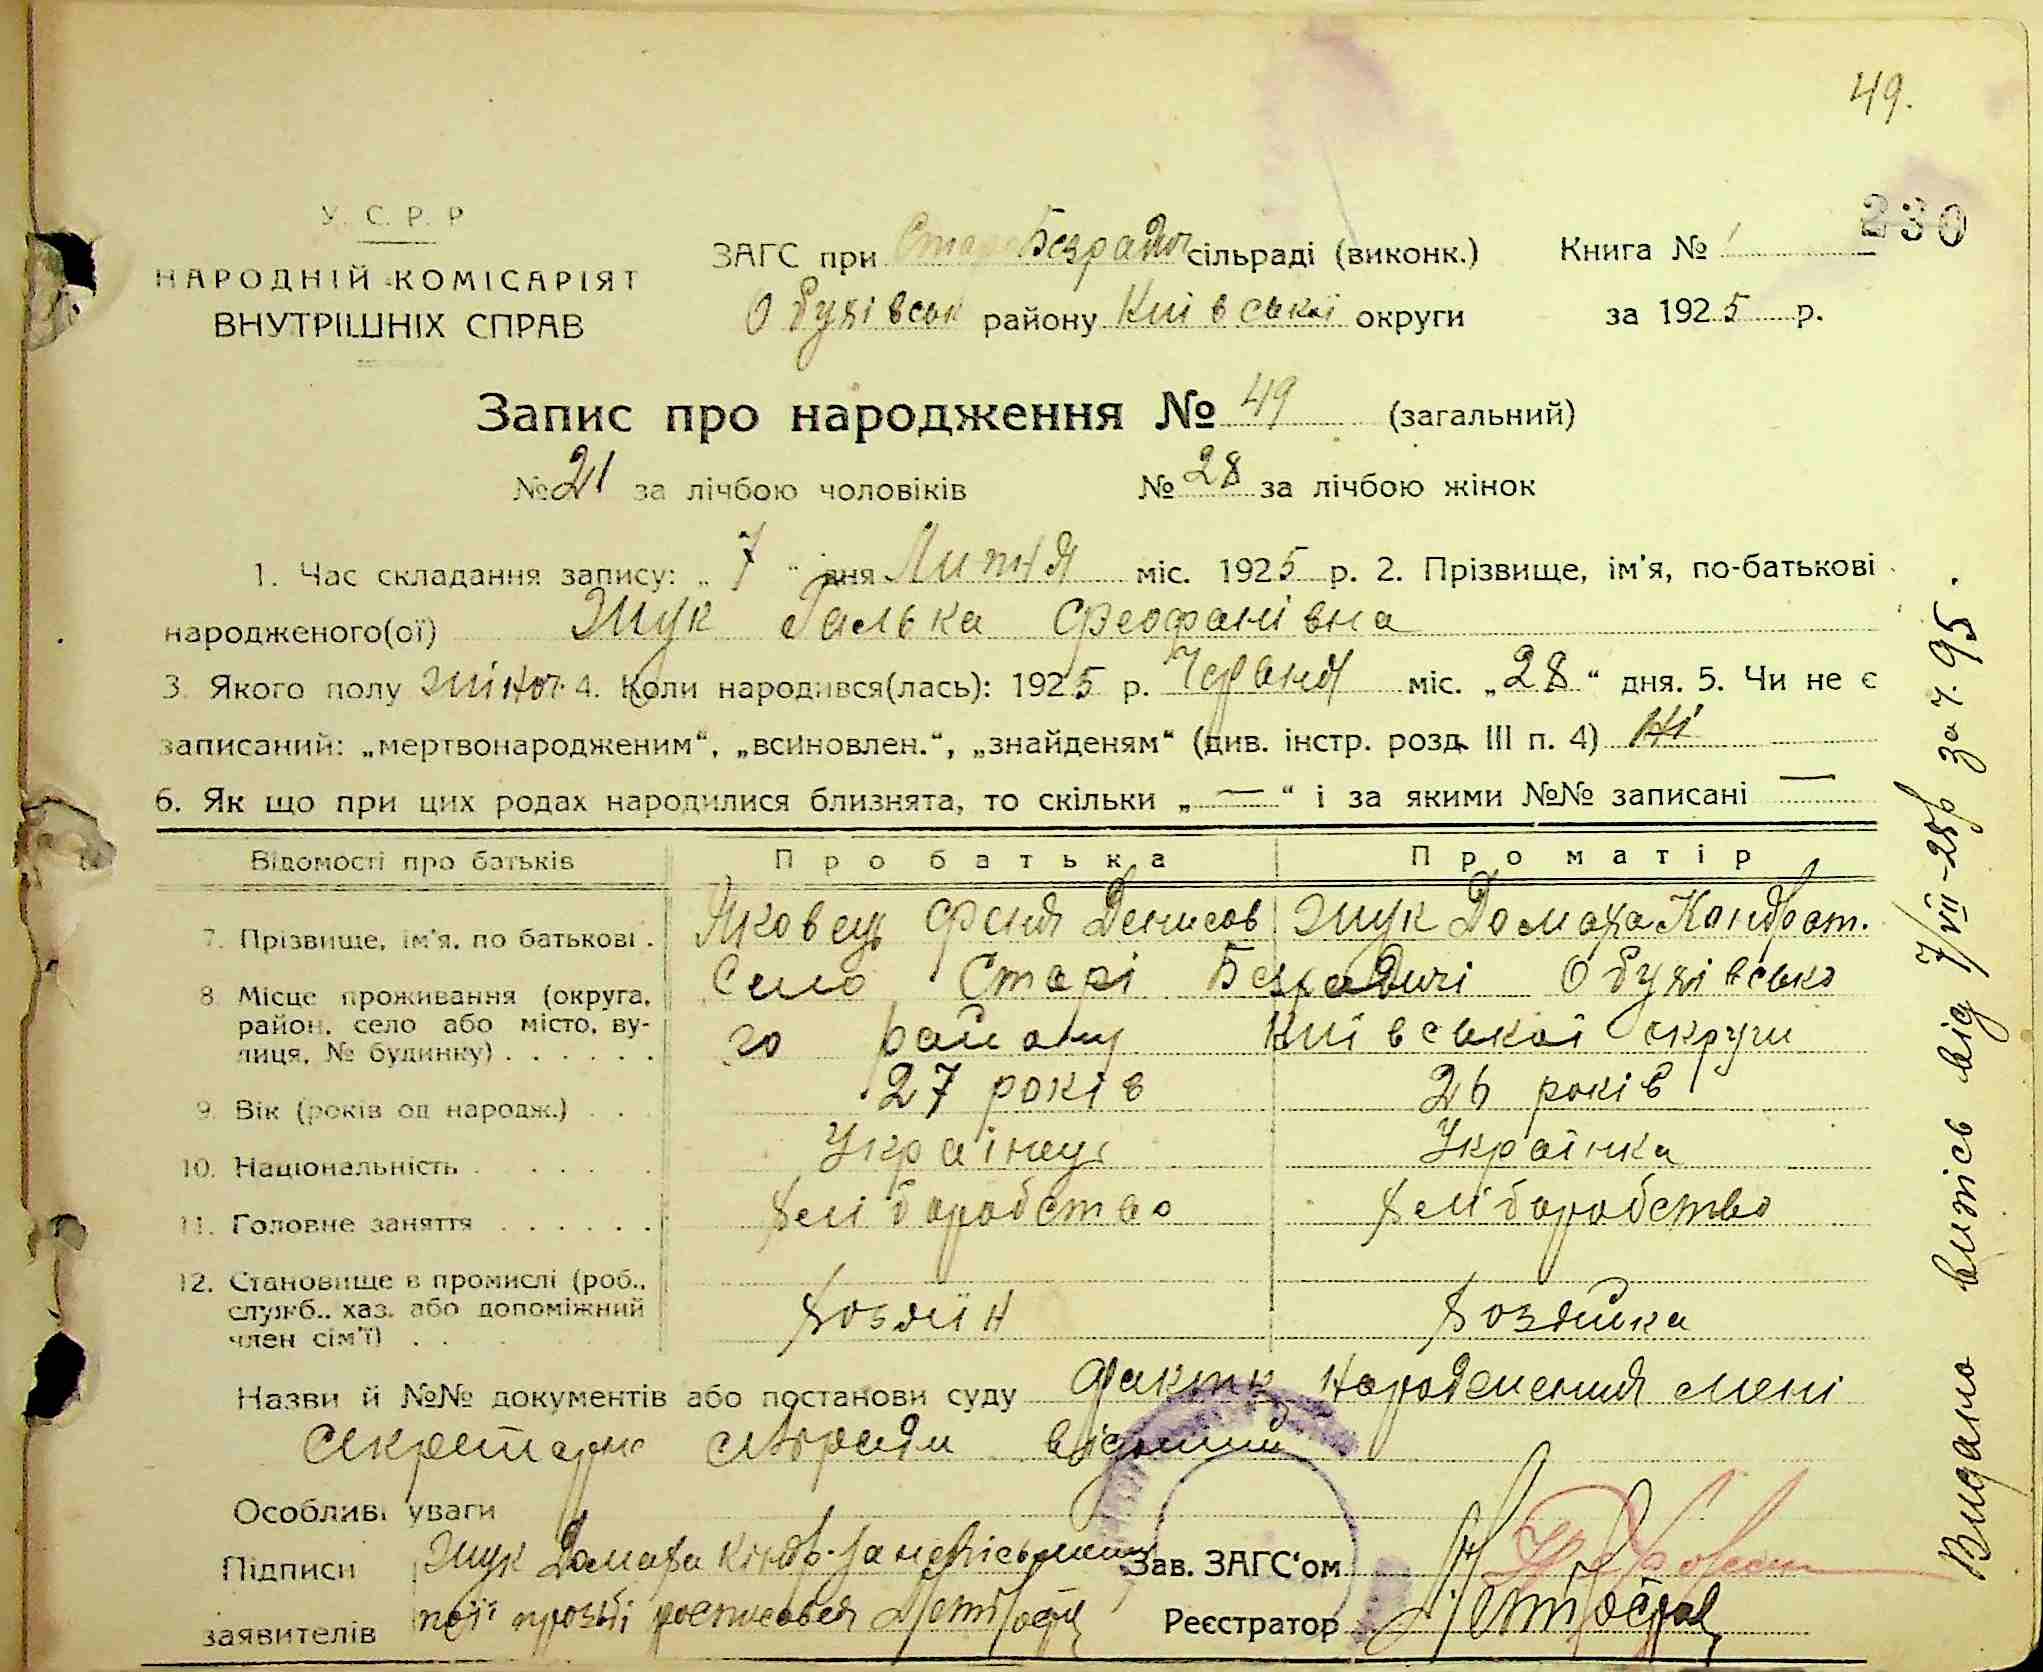 49.
230
У. С. Р. Р
НАРОДНІЙ КОМІСАРІЯТ
ВНУТРІШНІХ СПРАВ
ЗАГС при Старо Безрадич сільраді (виконк.)
Обухівськ району Київської округи
Книга № 1
за 1925 р.
Запис про народження № 49 (загальний)
№ 21 за лічбою чоловіків № 28 за лічбою жінок
1. Час складання запису: „ 7 “ дня Липня міс. 1925 р. 2. Прізвище, ім'я, по-батькові
народженого(ої) Жук Галька Феофанівна
3. Якого полу жіноч. 4. Коли народився(лась): 1925 р. Червня міс. „28“ дня. 5. Чи не є
записаний: „мертвонародженим“, „всиновлен.“, „знайденям“ (див. інстр. розд. III п. 4) Ні
6. Як що при цих родах народилися близнята, то скільки „ — “ і за якими №№ записані —
Відомості про батьків Про батька Про матір
7. Прізвище, ім'я, по батькові . Яковець Феня Денисов Жук Домаха Кондрат.
8. Місце проживання (округа, район, село або місто, вулиця, № будинку) . . . . . .
Село Старі Безрадичі Обухівсько
го району Київської округи
9. Вік (років од народж.) . . 27 років 26 років
10. Національність . . . . . Українець Українка
11. Головне заняття . . . . . . Хліборобство Хліборобство
12. Становище в промислі (роб., служб., хаз. або допоміжний член сім'ї) . . Хозяїн Хозяйка
Назви й №№ документів або постанови суду Фактк народження мені
секретарю сільради відомий
Особливі уваги
Підписи заявителів
Жук Домаха Кіндр. за неписьменну
по її прозьбі росписався
Зав. ЗАГС'ом
Реєстратор
Видано витісь від 7/VII-25р за ч. 95.